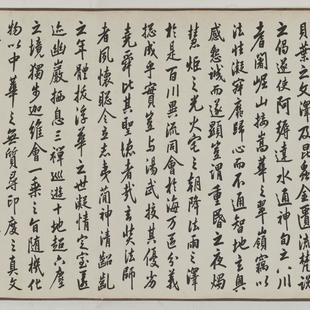 貝葉之文澤及昆蟲金匱流梵說
之偈遂使阿耨達水通神甸之八川
耆闍崛山接嵩華之翠嶺竊以
法性凝寂靡歸心而不通智地玄奧
感懇誠而遂顯豈謂重昏之夜燭
慧炬之光火宅之朝降法雨之澤
於是百川異流同會於海万區分義
揔成乎實豈與湯武校其優劣
堯舜比其聖德者哉玄奘法師
者夙懷聰令立志夷簡神清齠齔
之年體拔浮華之世凝情定室匿
迹幽巖栖息三禪巡遊十地超六塵
之境獨步迦維會一乘之旨隨機化
物以中華之無質尋印度之真文